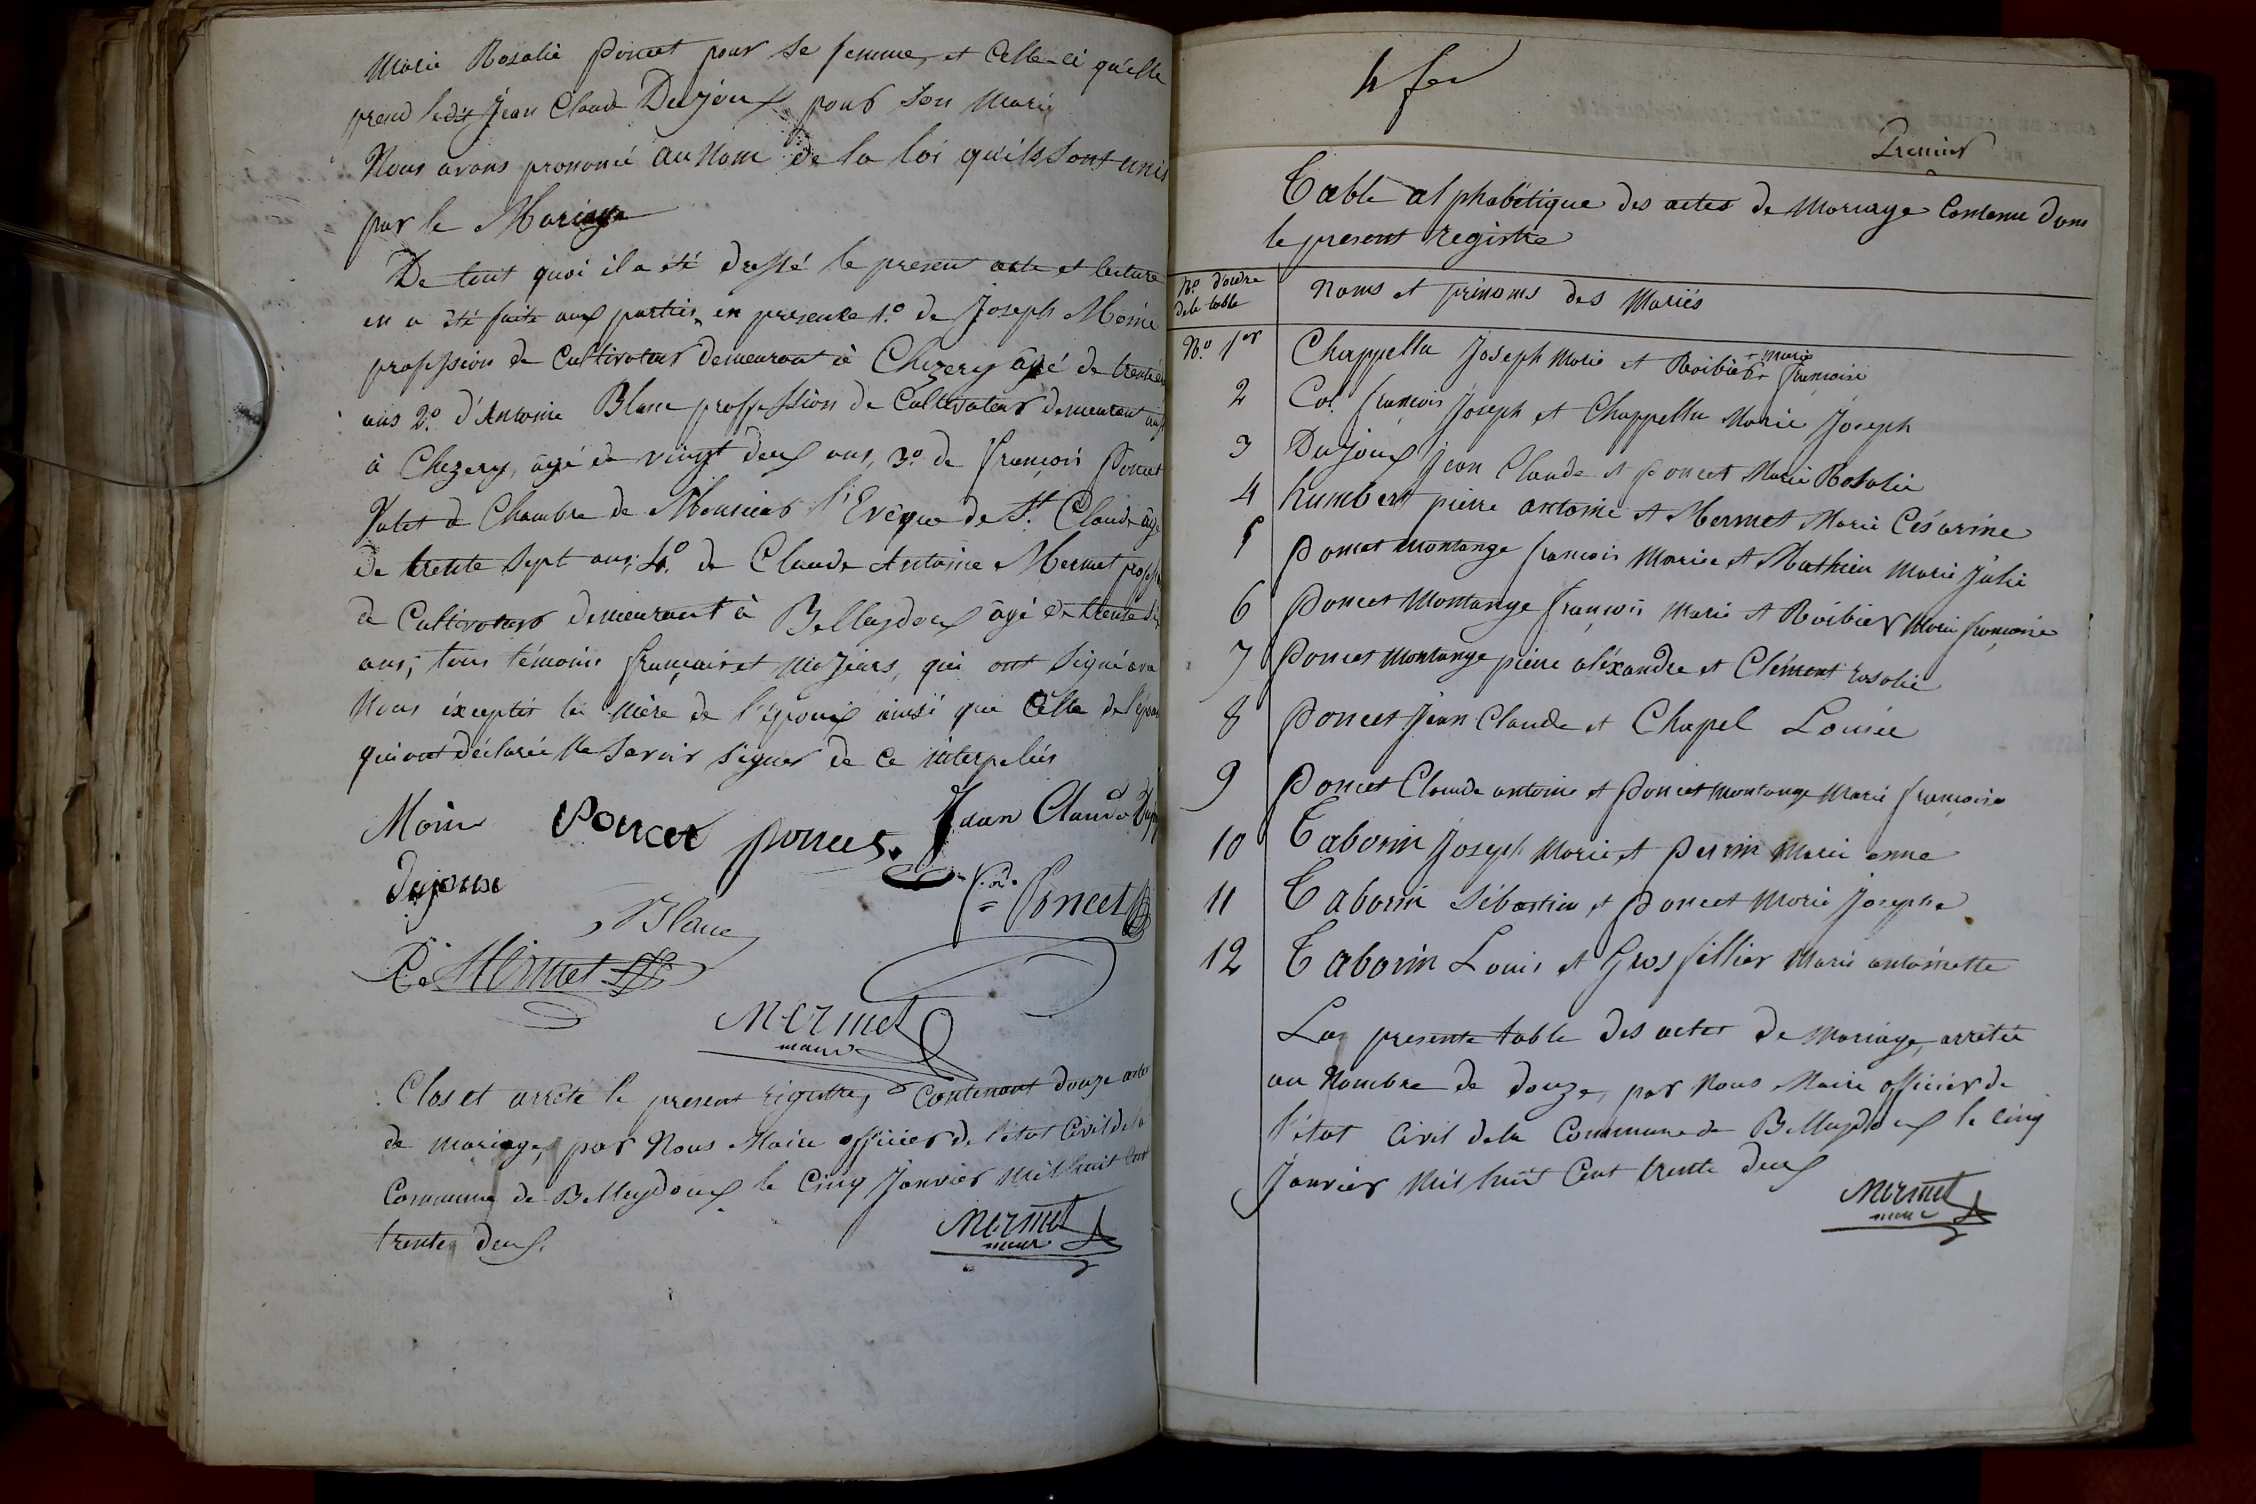 Marie Rosalie Poncet pour Se femme, et Celle-ci qu'elle
prend ledit Jean Claude Dujoux pour Son Mari
Nous avons prononcé au Nom de la loi qu'ils Sont unis
par le Mariage
De tout quoi il a été dressé le present acte et lecture
en a été faite aux parties, en presence 1.º de Joseph Moine
profession de Cultivateur demeurant à Chezery âgé de
ans 2.º d'Antoine Blanc proffession de Cultivateur demeurant
à Chezery, âgé de vingt deux ans, 3.º de françois Poncet
Valet de Chambre de Monsieur l'Evêque de St. Claude âgé
de trente Sept ans, 4.º de Claude Antoine Mermet
de Cultivateur demeurant à Belleydoux âgé de
ans, tous témoins français et Majeurs, qui ont Signé avec
Nous éxceptés la Mère de l'époux ainsi que Celle de
qui ont déclaré Ne Savoir Signer de ce interpelées
Moine Poncet Poncet Jean Claude
dujoux
Blanc Poncet
Mermet
Mermet
maire
Clos et arrêté le present registre, Contenant douze actes
de mariage, par Nous Maire officier de l'état Civil de la
Commune de Belleydoux le Cinq Janvier Mil huit Cent
trente deux.
Mermet
maire
Premier
Table alphabétique des actes de Mariage Contenu dans
le present registre
Nº. d'ordre
de la table
Noms et prénoms des Mariés
Nº. 1er Chappellu Joseph Marie et Roibier Marie
françoise
2 Col françois Joseph et Chappellu Marie Joseph
3 Dujoux Jean Claude et Poncet Marie Rosalie
4 humbert pierre antoine et Mermet Marie Césarine
5 Poncet Montange françois Marie et Mathieu Marie Julie
6 Poncet Montange françois Marie et Roibier Marie françoise
7 Poncet Montange pierre aléxandre et Clément rosalie
8 Poncet Jean Claude et Chapel Louise
9 Poncet Claude antoine et Poncet Montange Marie françoise
10 Taborin Joseph Marie et Perrin Marie anne
11 Taborin Sébastien et Poncet Marie Josephe
12 Taborin Louis et Grosfillier Marie antoinette
La presente table des actes de Mariage, arrêtée
au Nombre de douze, par Nous Maire officier de
l'état Civil de la Commune de Belleydoux le Cinq
Janvier Mil huit Cent trente deux
Mermet
maire